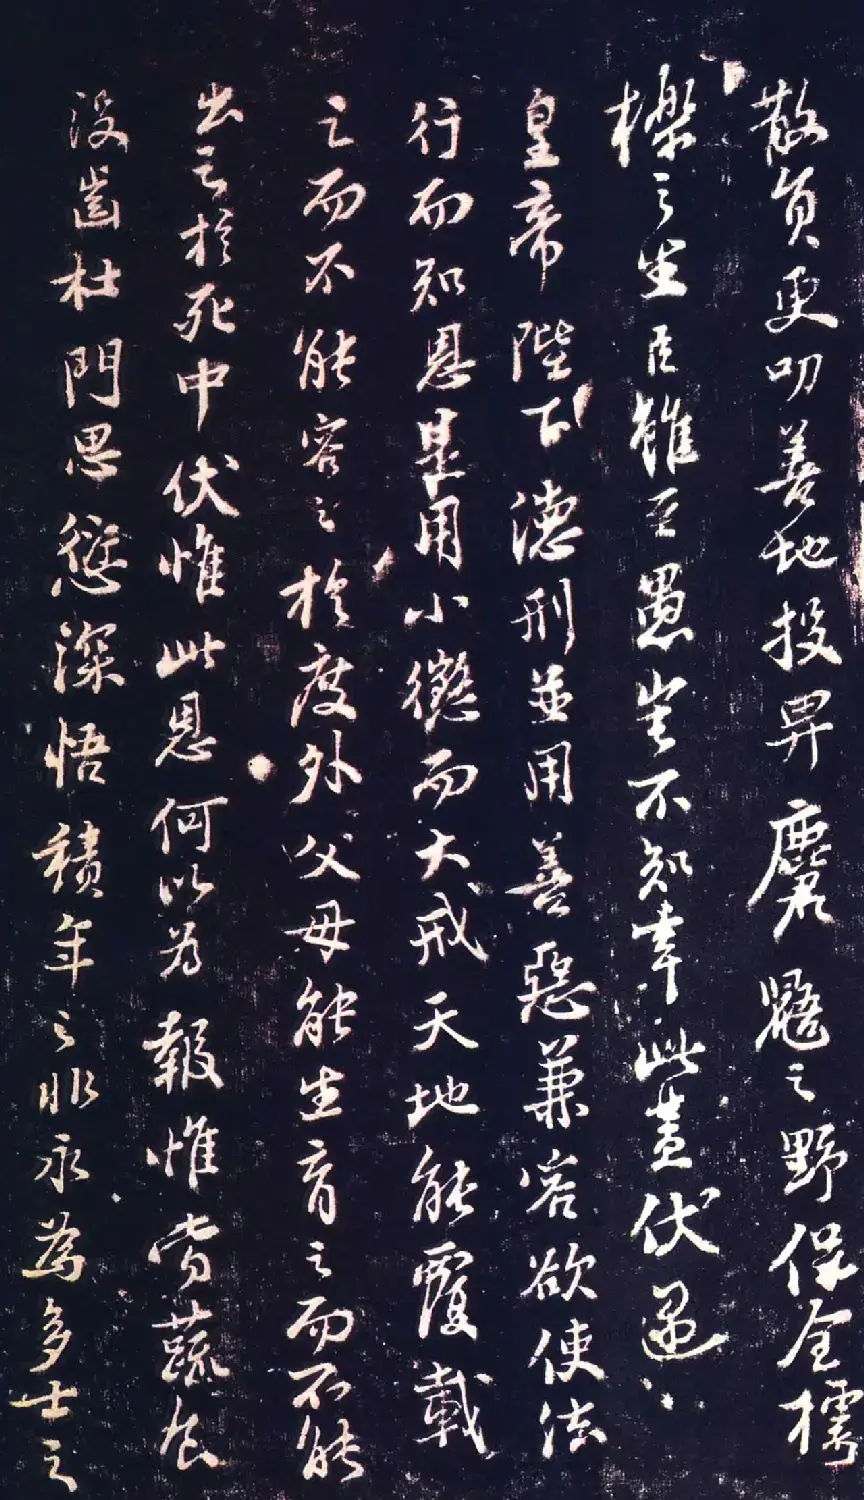 散員更叨善地投畀麏鼯之野保全樗
櫟之生臣雖至愚豈不知幸此蓋伏遇
皇帝陛下德刑並用善惡兼容欲使法
行而知恩是用小懲而大戒天地能覆載
之而不能容之於度外父母能生育之而不能
出之於死中伏惟此恩何以為報惟當蔬食
沒齒杜門思愆深悟積年之非永為多士之